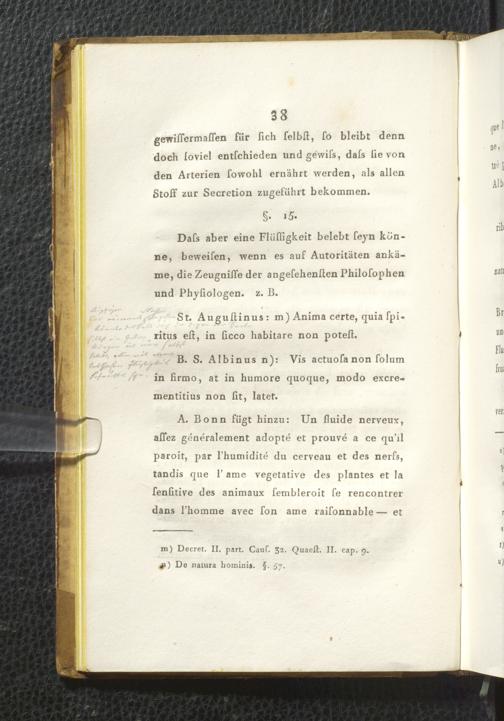 38
gewiſſermaſſen für ſich ſelbſt, ſo bleibt denn
doch ſoviel entſchieden und gewiſs, daſs ſie von
den Arterien ſowohl ernährt werden, als allen
Stoff zur Secretion zugeführt bekommen.
§. 15.
Daſs aber eine Flüſſigkeit belebt ſeyn kön-
ne, beweiſen, wenn es auf Autoritäten ankä-
me, die Zeugniſſe der angeſehenſten Philoſophen
und Phyſiologen. z. B.
St. Auguſtinus: m) Anima certe, quia ſpi-
ritus eſt, in ſicco habitare non poteſt.
B. S. Albinus n): Vis actuoſa non ſolum
in firmo, at in humore quoque, modo excre-
mentitius non ſit, latet.
A. Bonn fügt hinzu: Un fluide nerveux,
aſſez généralement adopté et prouvé a ce qu'il
paroit, par l'humidité du cerveau et des nerfs,
tandis que l'ame vegetative des plantes et la
ſenſitive des animaux ſembleroit ſe rencontrer
dans l'homme avec ſon ame raiſonnable — et
m) Decret. II. part. Cauſ. 32. Quaeſt. II. cap. 9.
n) De natura hominis. §. 57.